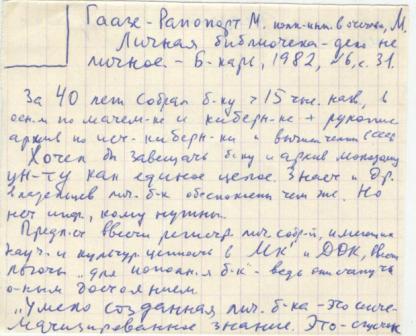 Гаазе-Рапопорт М. полк-инж. в отставке, М.
Личная библиотека - дело не
личное. - Б-карь, 1982, №6, с. 31.
За 40 лет собрал б-ку > 15 тыс. назв, в
осн. по матем-ке и киберн-ке + рукопис
архив по ист. киберн-ки и вычислит
Хотел бы завещать б-ку и архив молодому
ун-ту как единое целое. Знает и др.
владельцев лич. б-к обеспокоены тем же. Но
нет инф, кому нужны.
Предл-ет ввести регистр. лич. собр-й, имеющих
науч. и культур ценность в МК и ДОК, ввест
льготы для пополн-я б-к - ведь они станут
о-ным достоянием
"Умело созданная лич. б-ка - это систе-
матизированное знание. Это сгусток